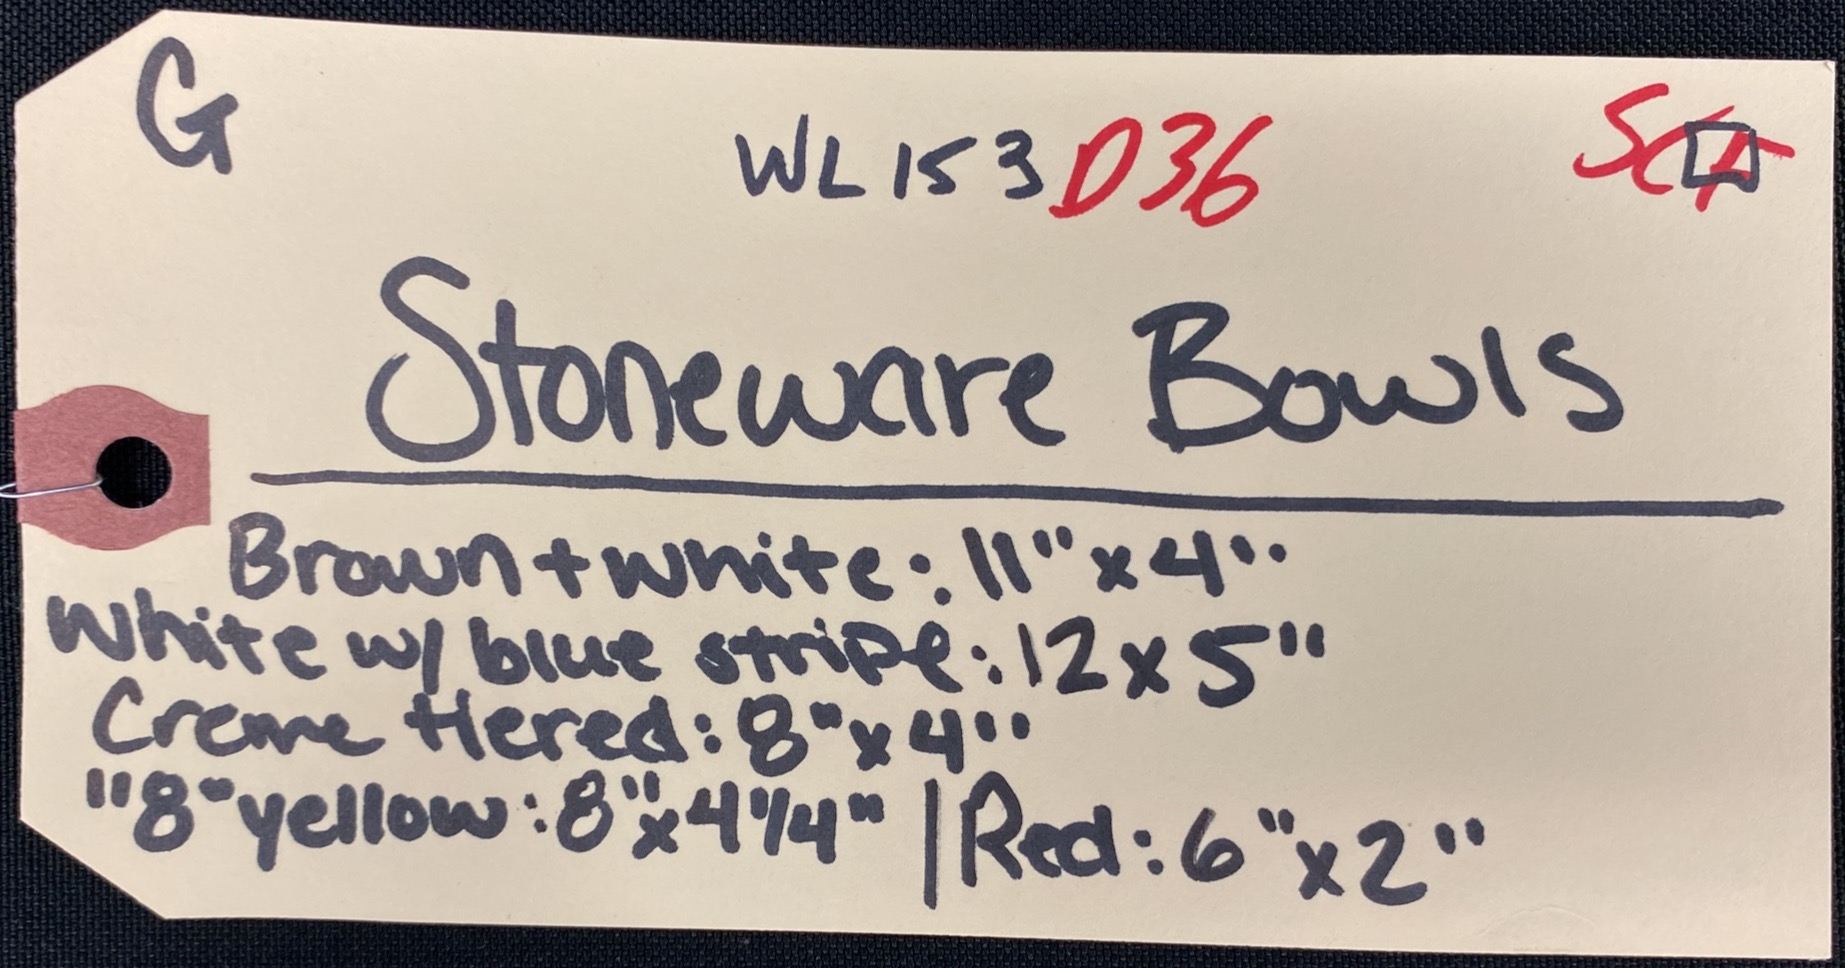 G
WL153 D36
Stoneware Bowls
Brown + white: 11" x 4"
White w/ blue stripe: 12 x 5"
Creme tiered: 8" x 4"
"8" yellow: 8" x 4 1/4" | Red: 6" x 2"